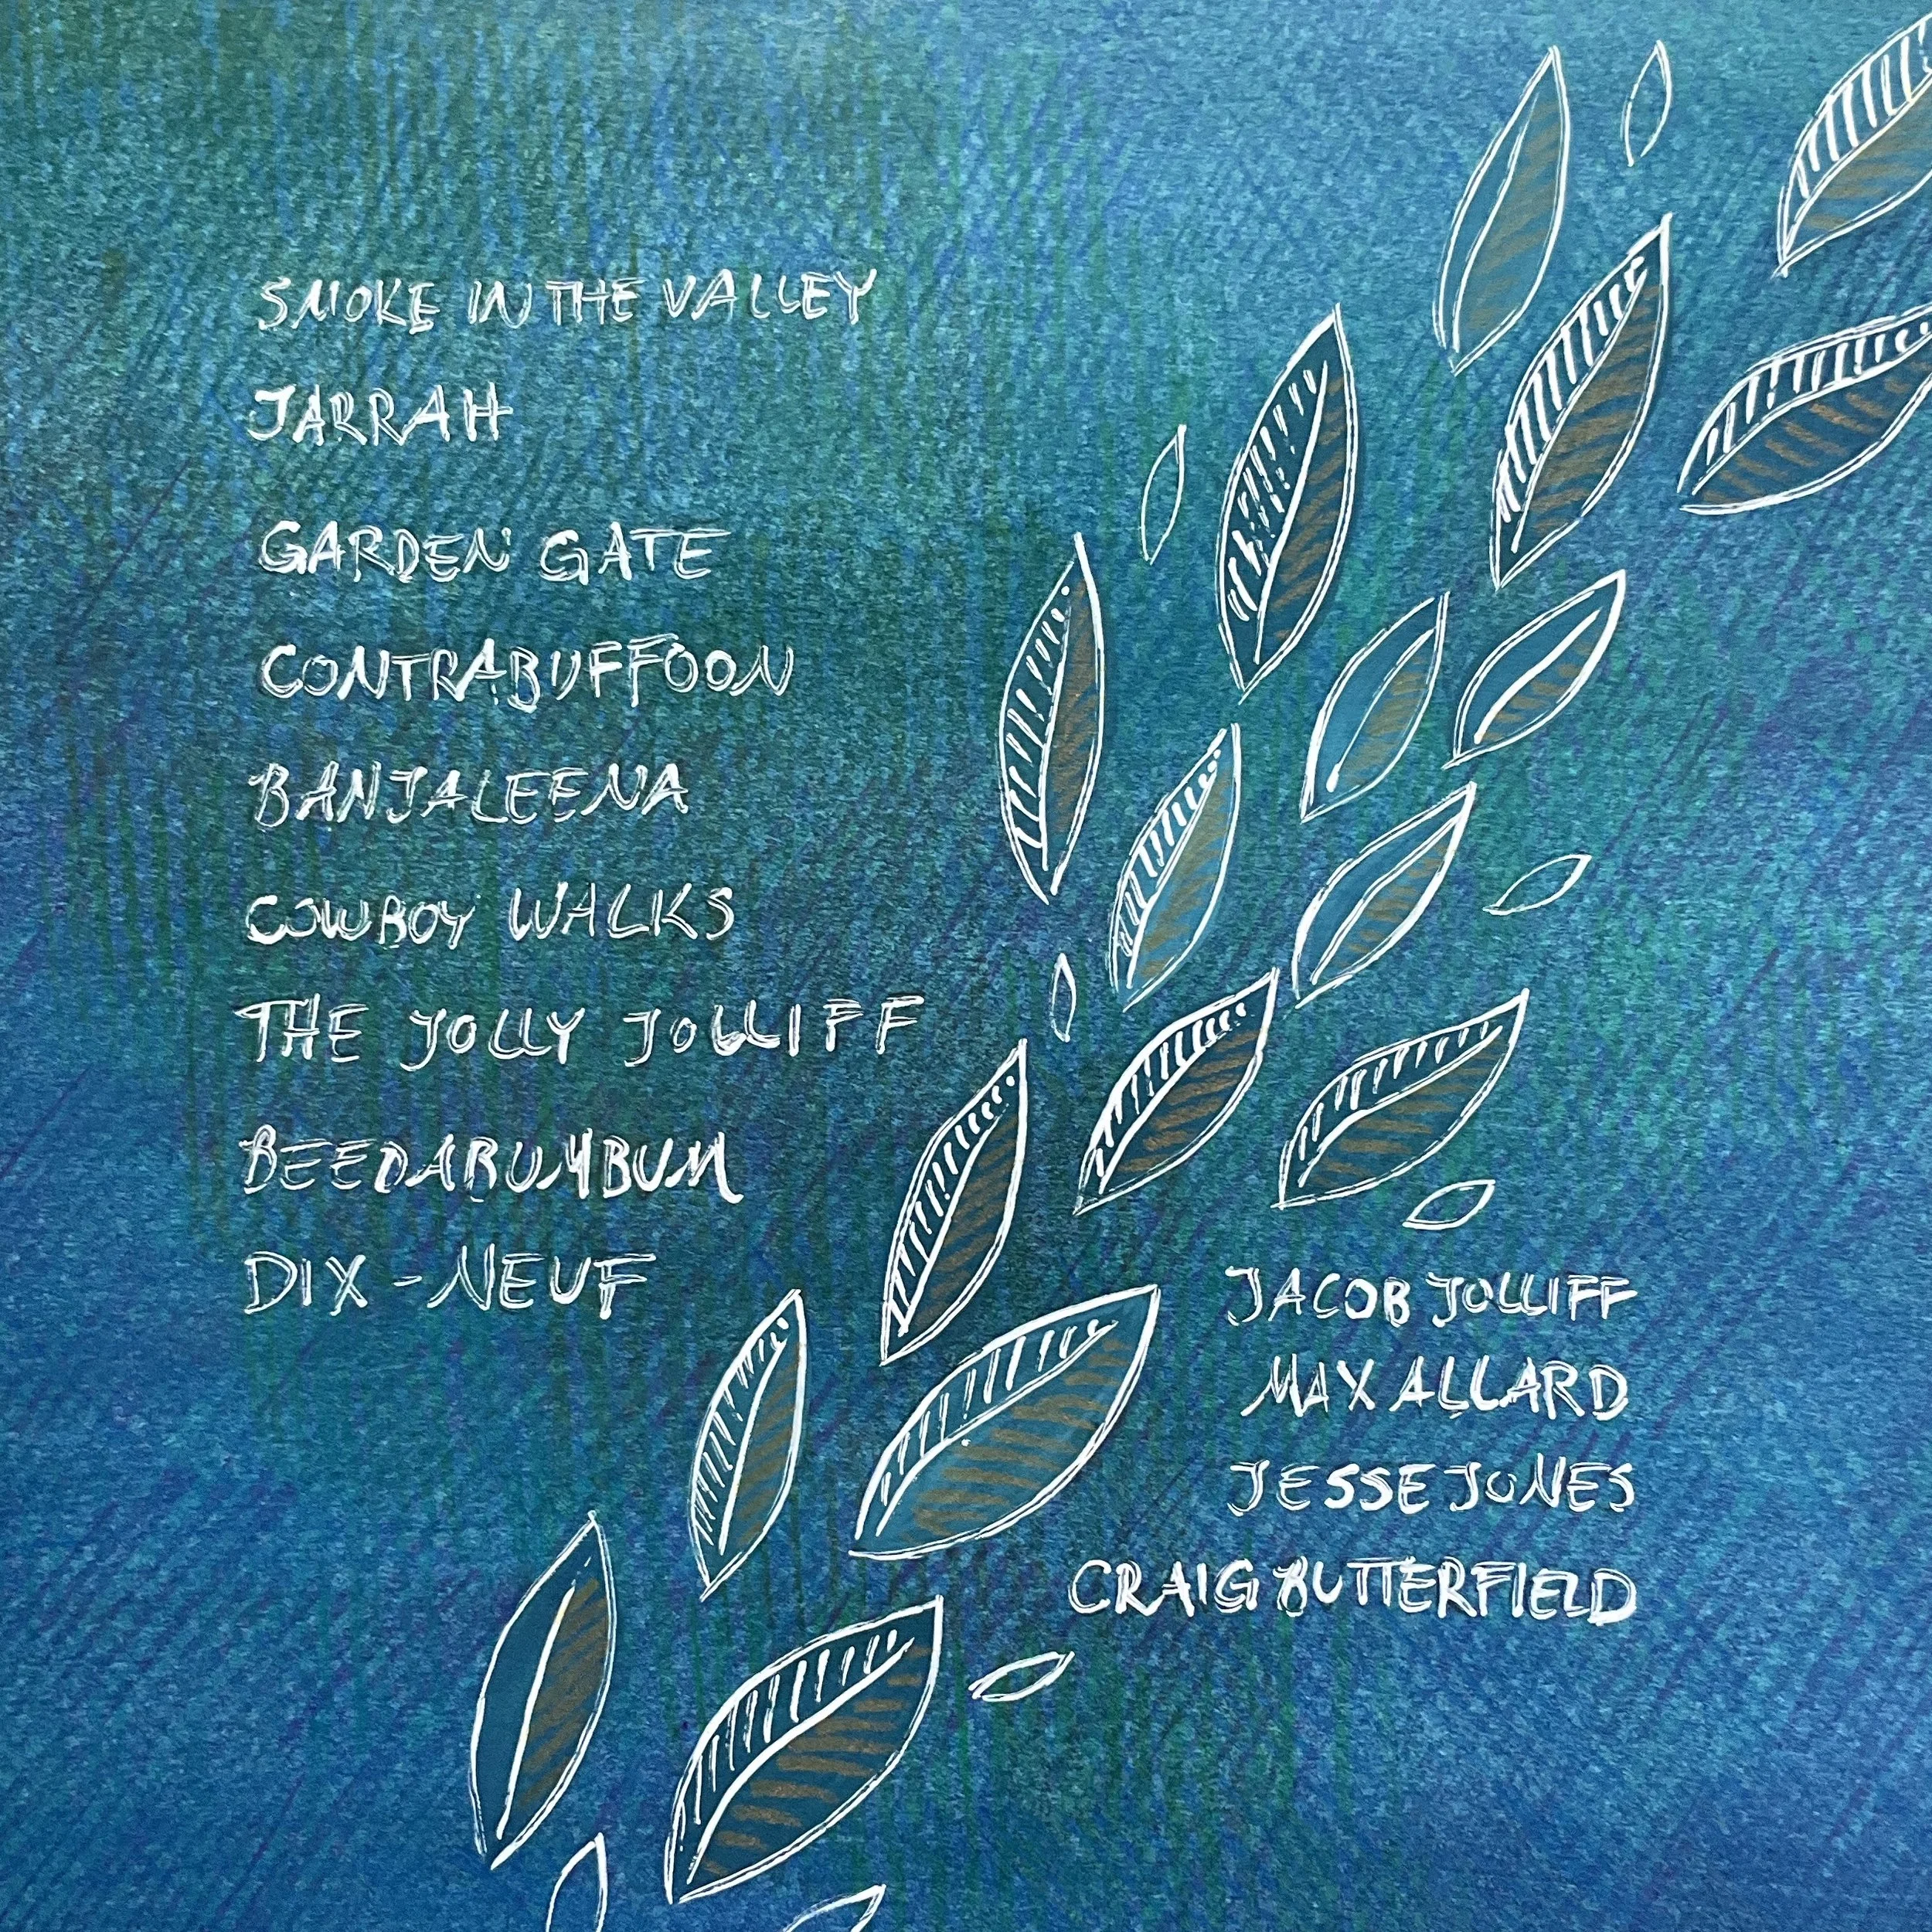 SMOKE IN THE VALLEY
JARRAH
GARDEN GATE
CONTRABUFFOON
BANJALEENA
COWBOY WALKS
THE JOLLY JOLLIFF
BEEDABUMBUM
DIX-NEUF
JACOB JOLLIFF
MAX ALLARD
JESSE JONES
CRAIG BUTTERFIELD